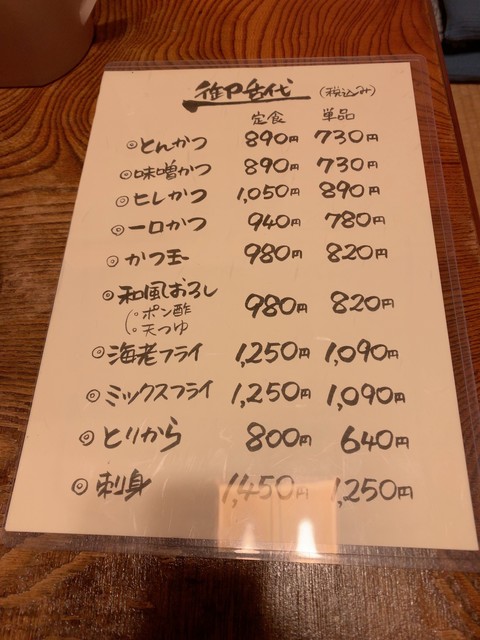 御品代 (税込み)
定食 単品
◎とんかつ 890円 730円
◎味噌かつ 890円 730円
◎ヒレかつ 1,050円 890円
◎一口かつ 940円 780円
◎かつ玉 980円 820円
◎和風おろし 980円 820円
(◦ポン酢
◦天つゆ
◎海老フライ 1,250円 1,090円
◎ミックスフライ 1,250円 1,090円
◎とりから 800円 640円
◎刺身 1,450円 1,250円